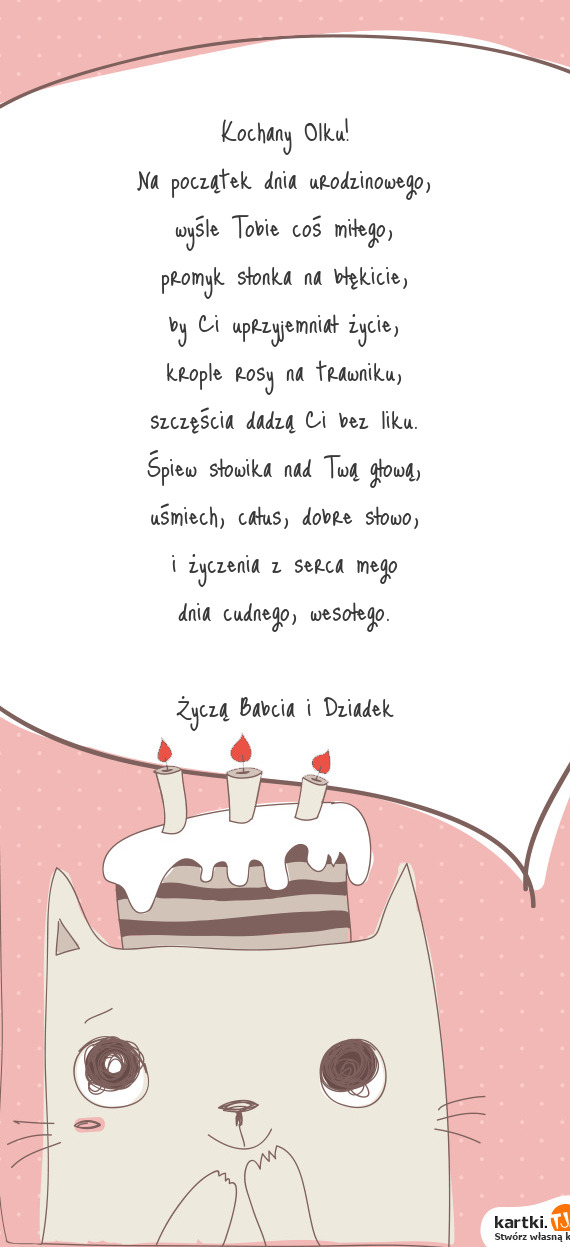 Kochany Olku!
Na początek dnia urodzinowego,
wyśle Tobie coś miłego,
promyk słonka na błękicie,
by Ci uprzyjemniał życie,
krople rosy na trawniku,
szczęścia dadzą Ci bez liku.
Śpiew słowika nad Twą głową,
uśmiech, całus, dobre słowo,
i życzenia z serca mego
dnia cudnego, wesołego.
Życzą Babcia i Dziadek
kartki.TJ
Stwórz własną k